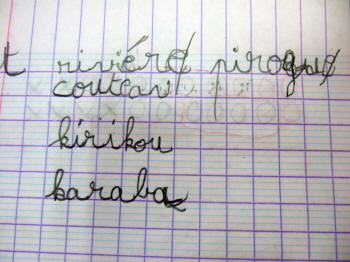 t rivière pirogue
couteau
kirikou
karaba